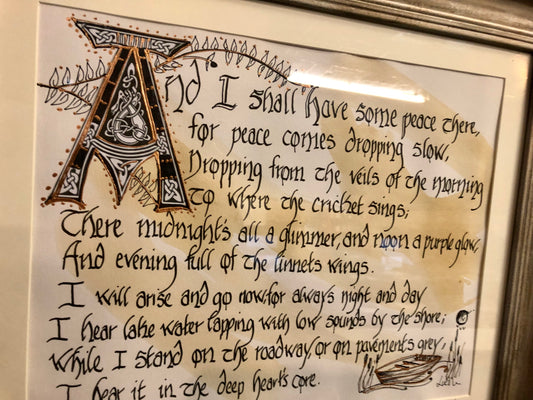 And I shall have some peace there,
for peace comes dropping slow,
Dropping from the veils of the morning
to where the cricket sings;
There midnight's all a glimmer, and noon a purple glow,
And evening full of the linnets wings.
I will arise and go now, for always night and day
I hear lake water lapping with low sounds by the shore;
While I stand on the roadway, or on pavements grey,
I hear it in the deep heart's core.